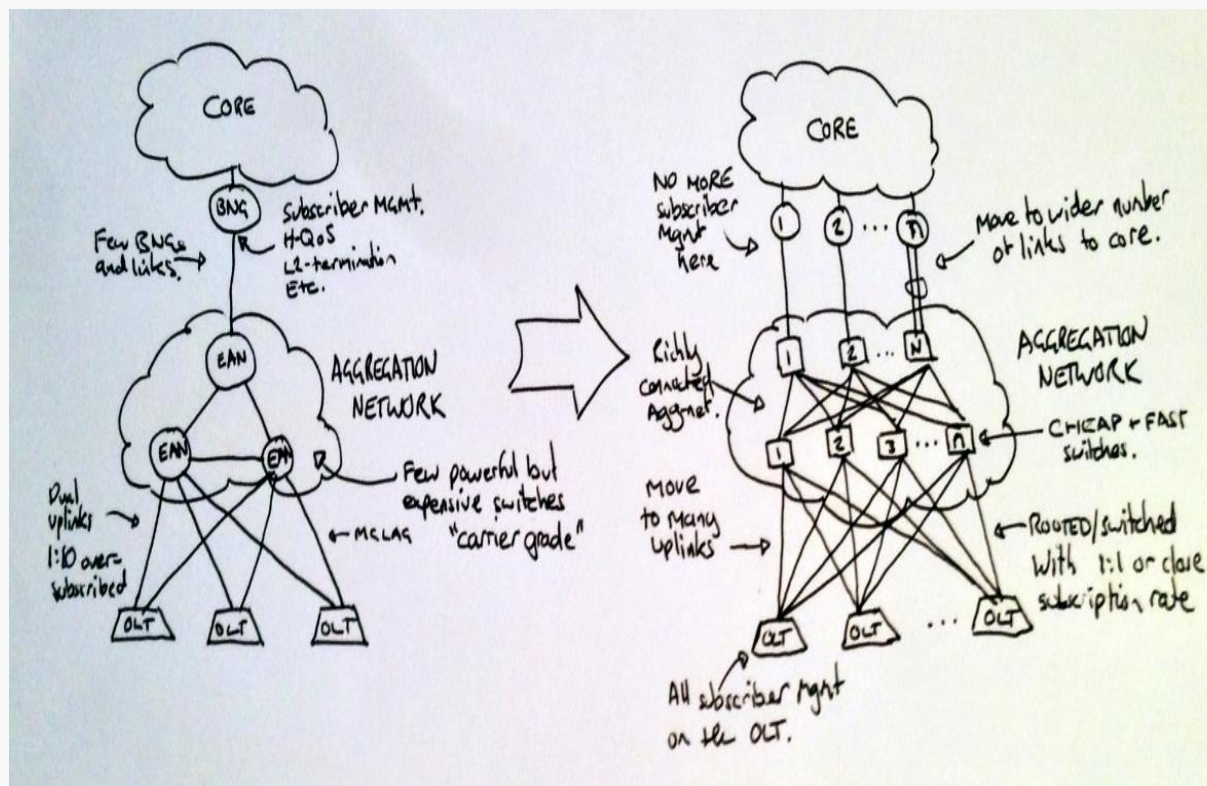 CORE
BNG
Subscriber MGMT.
H-QoS
L2-termination
Etc.
Few BNGs
and links.
EAN
AGGREGATION
NETWORK
EAN
EAN
Few powerful but
expensive switches
"carrier grade"
Dual
uplinks
1:10 over-
subscribed
MCLAG
OLT
OLT
OLT
CORE
NO MORE
subscriber
Mgmt
here
1
2
...
n
Move to wider number
of links to core.
1
2
...
N
AGGREGATION
NETWORK
Richly
connected
Agg-net.
1
2
3
...
n
CHEAP + FAST
switches.
Move
to many
uplinks
ROOTED/switched
with 1:1 or close
subscription rate
OLT
OLT
...
OLT
All subscriber mgmt
on the OLT.